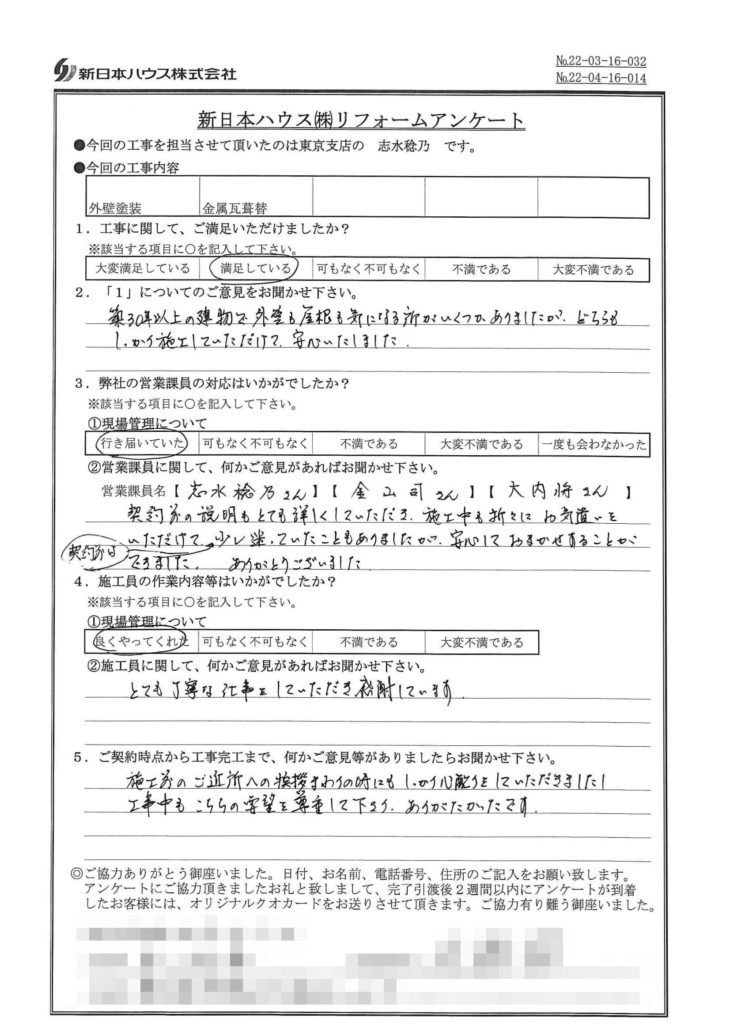 新日本ハウス株式会社
№22-03-16-032
№22-04-16-014
新日本ハウス㈱リフォームアンケート
●今回の工事を担当させて頂いたのは東京支店の 志水稔乃 です。
●今回の工事内容
外壁塗装 金属瓦葺替
1．工事に関して、ご満足いただけましたか？
※該当する項目に○を記入して下さい。
大変満足している 満足している 可もなく不可もなく 不満である 大変不満である
2．「1」についてのご意見をお聞かせ下さい。
築30年以上の建物で外壁も屋根も気になる所がいくつかありましたが、どちらも
しっかり施工していただけて、安心いたしました。
3．弊社の営業課員の対応はいかがでしたか？
※該当する項目に○を記入して下さい。
①現場管理について
行き届いていた 可もなく不可もなく 不満である 大変不満である 一度も会わなかった
②営業課員に関して、何かご意見があればお聞かせ下さい。
営業課員名【 志水稔乃さん 】【 金山司さん 】【 大内将さん 】
契約前の説明もとても詳しくしていただき、施工中も折々にお気遣いを
いただけて、少し迷っていたこともありましたが、安心しておまかせすることが
契約前は
できました。 ありがとうございました
4．施工員の作業内容等はいかがでしたか？
※該当する項目に○を記入して下さい。
①現場管理について
良くやってくれた 可もなく不可もなく 不満である 大変不満である
②施工員に関して、何かご意見があればお聞かせ下さい。
とても丁寧な仕事をしていただき感謝しています
5．ご契約時点から工事完工まで、何かご意見等がありましたらお聞かせ下さい。
施工前のご近所への挨拶まわりの時にもしっかり心配りをしていただきましたし
工事中もこちらの要望を尊重して下さり、ありがたかったです。
◎ご協力ありがとう御座いました。日付、お名前、電話番号、住所のご記入をお願い致します。
アンケートにご協力頂きましたお礼と致しまして、完了引渡後２週間以内にアンケートが到着
したお客様には、オリジナルクオカードをお送りさせて頂きます。ご協力有り難う御座いました。